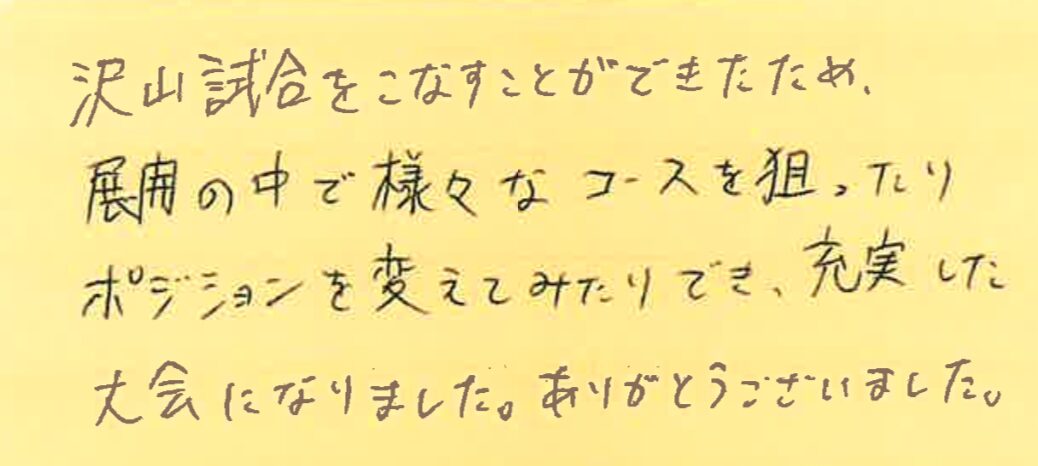 沢山試合をこなすことができたため、
展開の中で様々なコースを狙ったり
ポジションを変えてみたりでき、充実した
大会になりました。ありがとうございました。